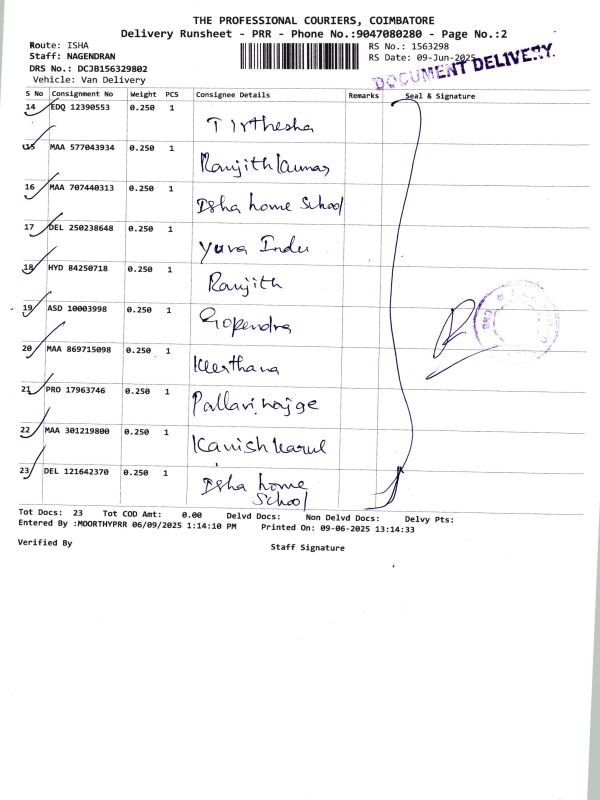 THE PROFESSIONAL COURIERS, COIMBATORE
Delivery Runsheet - PRR - Phone No.:9047080280 - Page No.:2
Route: ISHA
RS No.: 1563298
Staff: NAGENDRAN
RS Date: 09-Jun-2025
DRS No.: DCJB156329802
Vehicle: Van Delivery
DOCUMENT DELIVERY
S No Consignment No Weight PCS Consignee Details Remarks Seal & Signature
14 EDQ 12390553 0.250 1
Tirthesha
15 MAA 577043934 0.250 1
Ranjithkumar
16 MAA 707440313 0.250 1
Isha home School
17 DEL 250238648 0.250 1
Yuva Indu
18 HYD 84250718 0.250 1
Ranjith
19 ASD 10003998 0.250 1
Gopendra
20 MAA 869715098 0.250 1
Keerthana
21 PRO 17963746 0.250 1
Pallavi
22 MAA 301219800 0.250 1
Kanish
23 DEL 121642370 0.250 1
Isha home
School
Tot Docs: 23 Tot COD Amt: 0.00 Delvd Docs: Non Delvd Docs: Delvy Pts:
Entered By :MOORTHYPRR 06/09/2025 1:14:10 PM Printed On: 09-06-2025 13:14:33
Verified By
Staff Signature